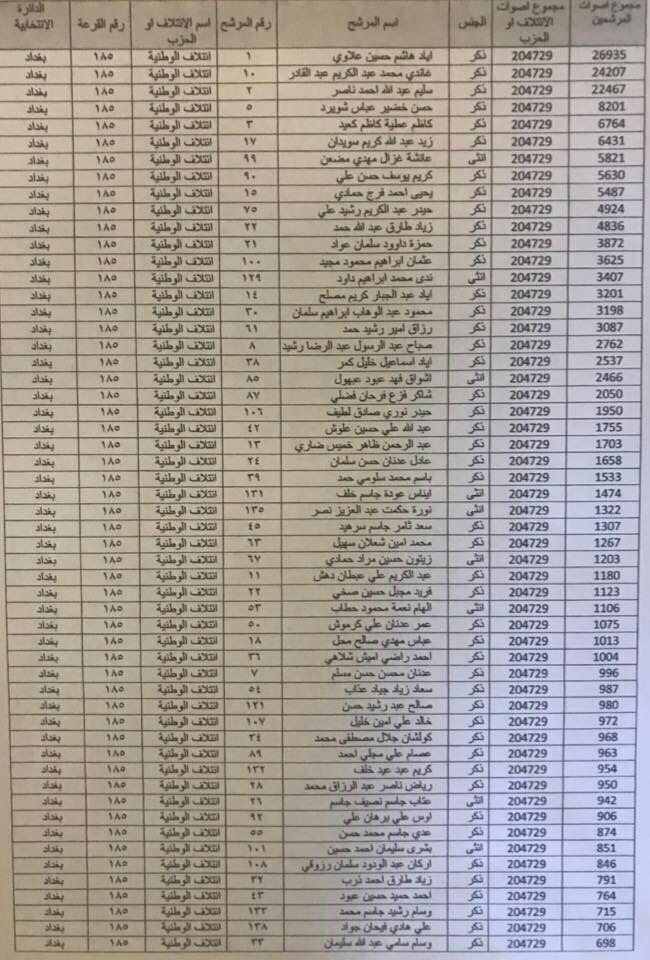 الدائرة الانتخابية رقم القرعة اسم الائتلاف او الحزب رقم المرشح اسم المرشح الجنس مجموع اصوات الائتلاف او الحزب مجموع اصوات المرشحين
بغداد ١٨٥ ائتلاف الوطنية ١ اياد هاشم حسين علاوي ذكر 204729 26935
بغداد ١٨٥ ائتلاف الوطنية ١٠ غاندي محمد عبد الكريم عبد القادر ذكر 204729 24207
بغداد ١٨٥ ائتلاف الوطنية ٢ سليم عبد الله احمد ناصر ذكر 204729 22467
بغداد ١٨٥ ائتلاف الوطنية ٥ حسن خضير عباس شويرد ذكر 204729 8201
بغداد ١٨٥ ائتلاف الوطنية ٣ كاظم عطية كاظم كعيد ذكر 204729 6764
بغداد ١٨٥ ائتلاف الوطنية ١٧ زيد عبد الله كريم سويدان ذكر 204729 6431
بغداد ١٨٥ ائتلاف الوطنية ٩٩ عائشة غزال مهدي مضعن انثى 204729 5821
بغداد ١٨٥ ائتلاف الوطنية ٩٠ كريم يوسف حسن علي ذكر 204729 5630
بغداد ١٨٥ ائتلاف الوطنية ١٥ يحيى احمد فرج حمادي ذكر 204729 5487
بغداد ١٨٥ ائتلاف الوطنية ٧٥ حيدر عبد الكريم رشيد علي ذكر 204729 4924
بغداد ١٨٥ ائتلاف الوطنية ٢٢ زياد طارق عبد الله حمد ذكر 204729 4836
بغداد ١٨٥ ائتلاف الوطنية ٢١ حمزة داوود سلمان عواد ذكر 204729 3872
بغداد ١٨٥ ائتلاف الوطنية ١٠٠ عثمان ابراهيم محمود مجيد ذكر 204729 3625
بغداد ١٨٥ ائتلاف الوطنية ١٢٩ ندى محمد ابراهيم داود انثى 204729 3407
بغداد ١٨٥ ائتلاف الوطنية ١٤ اياد عبد الجبار كريم مصلح ذكر 204729 3201
بغداد ١٨٥ ائتلاف الوطنية ٣٠ محمود عبد الوهاب ابراهيم سلمان ذكر 204729 3198
بغداد ١٨٥ ائتلاف الوطنية ٦١ رزاق امير رشيد حمد ذكر 204729 3087
بغداد ١٨٥ ائتلاف الوطنية ٨ صباح عبد الرسول عبد الرضا رشيد ذكر 204729 2762
بغداد ١٨٥ ائتلاف الوطنية ٣٨ اياد اسماعيل خليل كمر ذكر 204729 2537
بغداد ١٨٥ ائتلاف الوطنية ٨٥ اشواق فهد عبود عبهول انثى 204729 2466
بغداد ١٨٥ ائتلاف الوطنية ٨٧ شاكر فزع فرحان فضلي ذكر 204729 2050
بغداد ١٨٥ ائتلاف الوطنية ١٠٦ حيدر نوري صادق لطيف ذكر 204729 1950
بغداد ١٨٥ ائتلاف الوطنية ٤٢ عبد الله علي حسين علوش ذكر 204729 1755
بغداد ١٨٥ ائتلاف الوطنية ١٣ عبد الرحمن ظاهر خميس ضاري ذكر 204729 1703
بغداد ١٨٥ ائتلاف الوطنية ٢٤ عادل عدنان حسن سلمان ذكر 204729 1658
بغداد ١٨٥ ائتلاف الوطنية ٣٩ باسم محمد سلومي حمد ذكر 204729 1533
بغداد ١٨٥ ائتلاف الوطنية ١٣١ ايناس عودة جاسم خلف انثى 204729 1474
بغداد ١٨٥ ائتلاف الوطنية ١٣٥ نورة حكمت عبد العزيز نصر انثى 204729 1322
بغداد ١٨٥ ائتلاف الوطنية ٤٥ سعد ثامر جاسم سرهيد ذكر 204729 1307
بغداد ١٨٥ ائتلاف الوطنية ٦٣ محمد امين شعلان سهيل ذكر 204729 1267
بغداد ١٨٥ ائتلاف الوطنية ٦٧ زيتون حسين مراد حمادي انثى 204729 1203
بغداد ١٨٥ ائتلاف الوطنية ١١ عبد الكريم علي عبطان دهش ذكر 204729 1180
بغداد ١٨٥ ائتلاف الوطنية ٢٢ فريد مجبل حسين صخي ذكر 204729 1123
بغداد ١٨٥ ائتلاف الوطنية ٥٣ الهام نعمة محمود حطاب انثى 204729 1106
بغداد ١٨٥ ائتلاف الوطنية ٥٠ عمر عدنان علي كرموش ذكر 204729 1075
بغداد ١٨٥ ائتلاف الوطنية ١٨ عباس مهدي صالح محل ذكر 204729 1013
بغداد ١٨٥ ائتلاف الوطنية ٣٦ احمد راضي اميش شلاهي ذكر 204729 1004
بغداد ١٨٥ ائتلاف الوطنية ٧ عدنان محسن حسن مسلم ذكر 204729 996
بغداد ١٨٥ ائتلاف الوطنية ٥٤ سعاد زياد جياد عذاب ذكر 204729 987
بغداد ١٨٥ ائتلاف الوطنية ١٢١ صالح عبد رشيد حسن ذكر 204729 980
بغداد ١٨٥ ائتلاف الوطنية ١٠٧ خالد علي امين خليل ذكر 204729 972
بغداد ١٨٥ ائتلاف الوطنية ٣٤ كولشان جلال مصطفى محمد ذكر 204729 968
بغداد ١٨٥ ائتلاف الوطنية ٨٩ عصام علي مجلي احمد ذكر 204729 963
بغداد ١٨٥ ائتلاف الوطنية ١٣٢ كريم عبد عبد خلف ذكر 204729 954
بغداد ١٨٥ ائتلاف الوطنية ٢٨ رياض ناصر عبد الرزاق محمد ذكر 204729 950
بغداد ١٨٥ ائتلاف الوطنية ٢٦ عتاب جاسم نصيف جاسم انثى 204729 942
بغداد ١٨٥ ائتلاف الوطنية ٩٢ اوس علي برهان علي ذكر 204729 906
بغداد ١٨٥ ائتلاف الوطنية ٥٥ عدي جاسم محمد حسن ذكر 204729 874
بغداد ١٨٥ ائتلاف الوطنية ١٠١ بشرى سليمان احمد حسين انثى 204729 851
بغداد ١٨٥ ائتلاف الوطنية ١٠٨ اركان عبد الودود سلمان رزوقي ذكر 204729 846
بغداد ١٨٥ ائتلاف الوطنية ٣٢ زياد طارق احمد ذرب ذكر 204729 791
بغداد ١٨٥ ائتلاف الوطنية ٤٣ احمد حميد حسين عبود ذكر 204729 764
بغداد ١٨٥ ائتلاف الوطنية ١٣٣ وسام رشيد جاسم محمد ذكر 204729 715
بغداد ١٨٥ ائتلاف الوطنية ١٣٨ علي هادي فيحان جواد ذكر 204729 706
بغداد ١٨٥ ائتلاف الوطنية ٣٣ وسام سامي عبد الله سليمان ذكر 204729 698